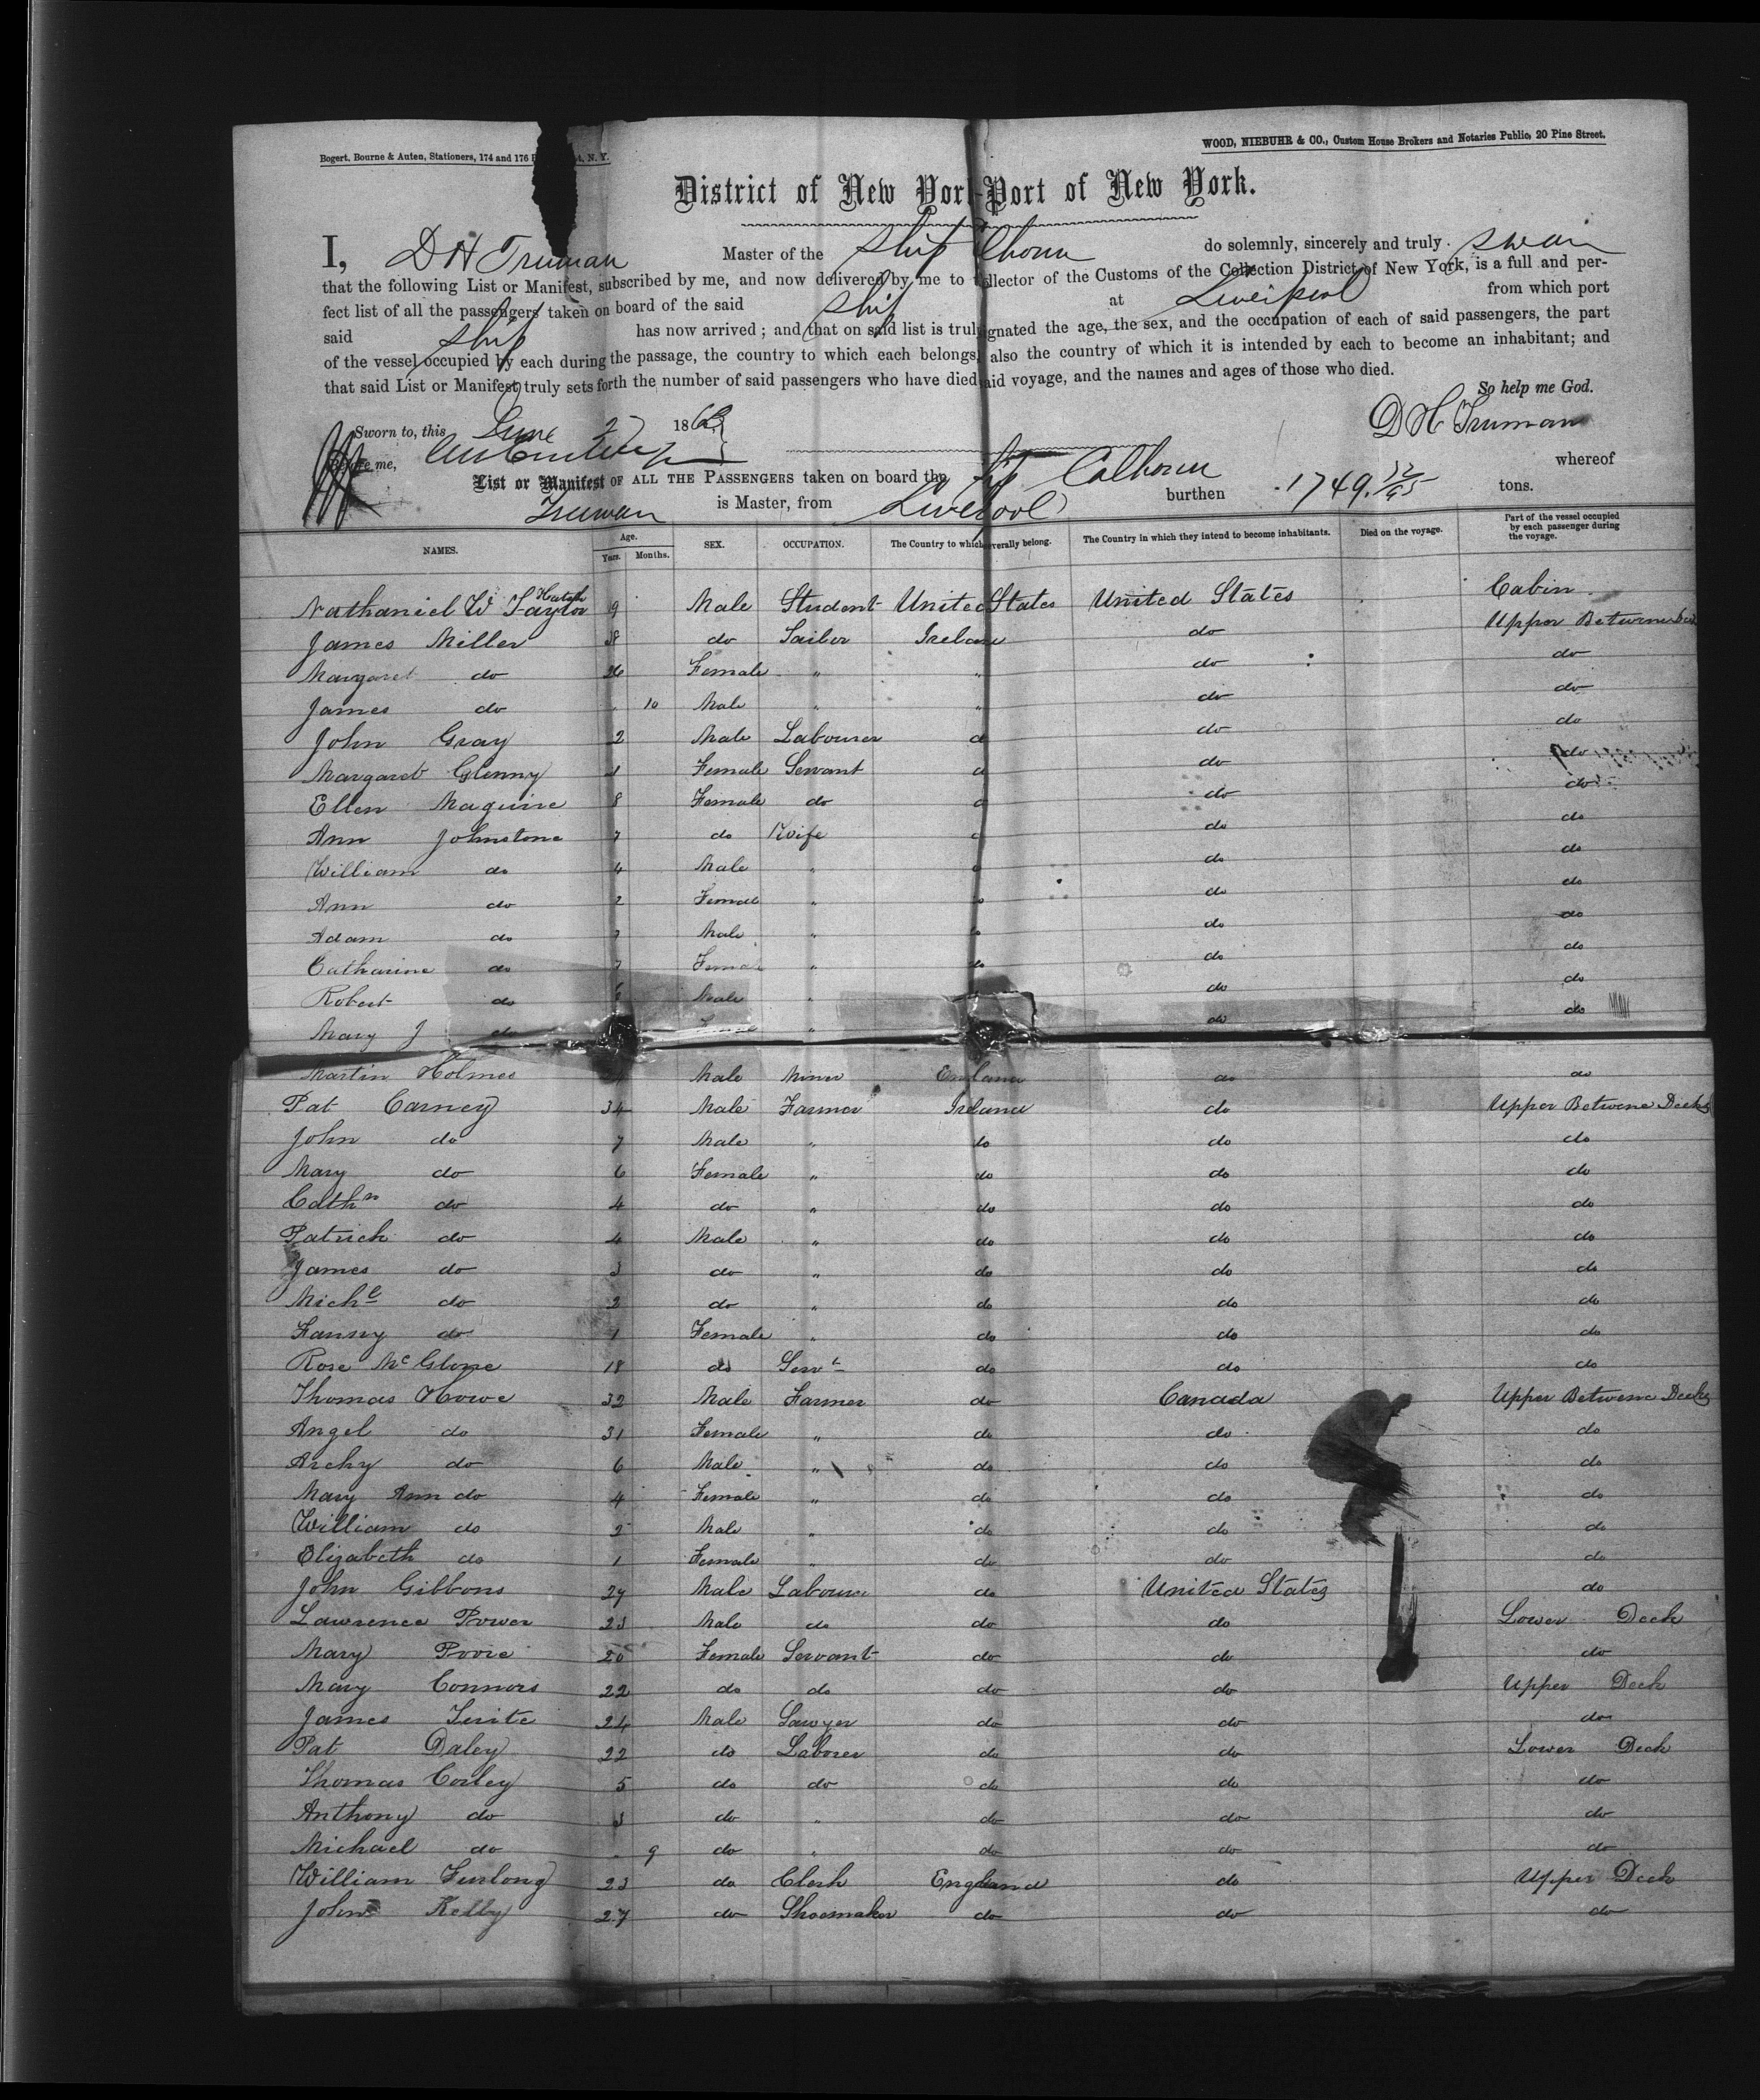 Bogert, Bourne & Auten, Stationers, 174 and 176 N. Y.
WOOD, NIEBUHR & CO., Custom House Brokers and Notaries Public, 20 Pine Street.
District of New York Port of New York.
I, D H Truman Master of the Ship lhoun do solemnly, sincerely and truly swear
that the following List or Manifest, subscribed by me, and now delivered by me to llector of the Customs of the Collection District of New York, is a full and per-
fect list of all the passengers taken on board of the said Ship at Liverpool from which port
said Ship has now arrived; and that on said list is truly ignated the age, the sex, and the occupation of each of said passengers, the part
of the vessel occupied by each during the passage, the country to which each belongs, also the country of which it is intended by each to become an inhabitant; and
that said List or Manifest truly sets forth the number of said passengers who have died aid voyage, and the names and ages of those who died.
So help me God.
Sworn to, this June 27 1863 D H Truman
Before me,
List or Manifest OF ALL THE PASSENGERS taken on board the Ship Calhoun whereof
Truman is Master, from Liverpool burthen 1749. 52/95 tons.
NAMES. Age. Years. Months. SEX. OCCUPATION. The Country to which verally belong. The Country in which they intend to become inhabitants. Died on the voyage. Part of the vessel occupied by each passenger during the voyage.
Nathaniel W Taylor Hatch 9 Male Student United States United States Cabin
James Miller 38 do Sailor Ireland do Upper Betwene
Margaret do 26 Female " " do do
James do 10 Male " " do do
John Gray 2 Male Labourer d do do
Margaret Glenny Female Servant d do do
Ellen Maguire 8 Female do d do do
Ann Johnstone 7 do Wife do do
William do 4 Male " do do
Ann do 2 Female " do do
Adam do Male " do do
Catharine do 7 Female " do do do
Robert do Male " do do
Mary J do " do do
Martin Holmes Male Miner England do do
Pat Carney 34 Male Farmer Ireland do Upper Betwene Decks
John do 7 Male " do do do
Mary do 6 Female " do do do
Cathn do 4 do " do do do
Patrick do 4 Male " do do do
James do 3 do " do do do
Michl do 2 do " do do do
Fanny do 1 Female " do do do
Rose McGlone 18 do Servt do do do
Thomas Howe 32 Male Farmer do Canada Upper Betwene Decks
Angel do 31 Female " do do do
Archy do 6 Male " do do do
Mary Ann do 4 Female " do do do
William do 2 Male " do do do
Elizabeth do 1 Female " do do do
John Gibbons 27 Male Labourer do United States do
Lawrence Power 23 Male do do do Lower Deck
Mary Poore 20 Female Servant do do do
Mary Connors 22 do do do do Upper Deck
James 24 Male Sawyer do do do
Pat Daley 22 do Laborer do do Lower Deck
Thomas Corley 5 do do do do do
Anthony do 3 do " do do do
Michael do 9 do " do do do
William Furlong 23 do Clerk England do Upper Deck
John Kelly 27 do Shoemaker do do do